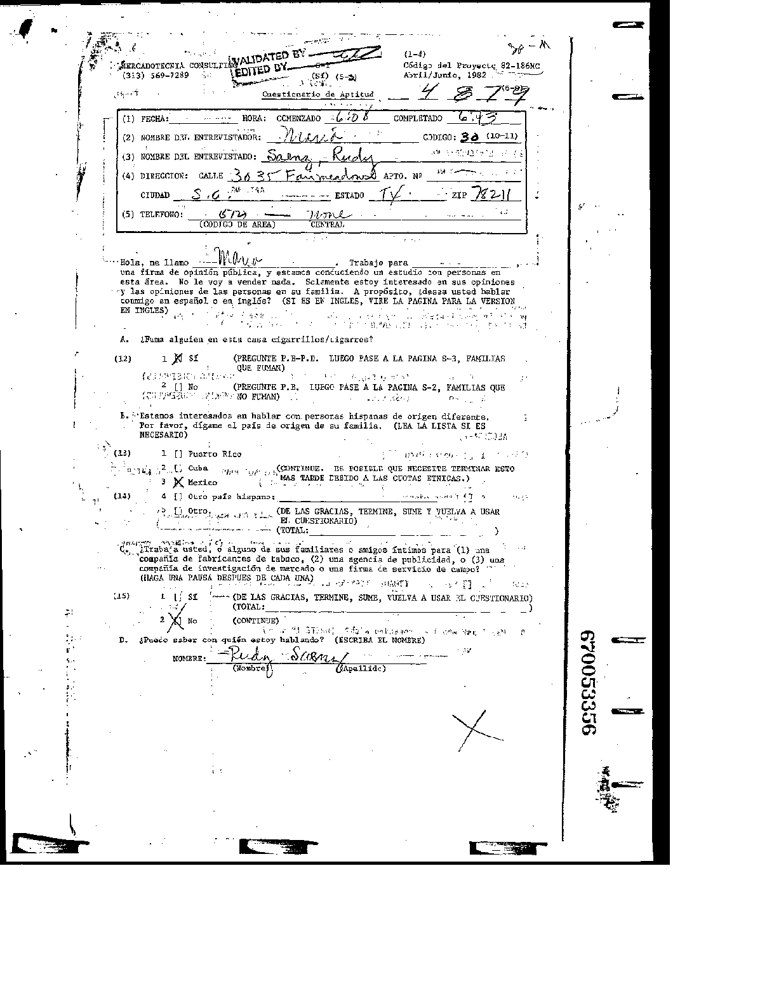 VALIDATED BY
(1-4)
MERCADOTECNIA
EDITED BY
Código del Proyecto 82-186NC
(313) 569-7289
Abril/Junio, 1982
(Sf) (5-
Cuestionario de Aptitud
4 8 7
(1) FECHA: HORA: COMENZADO 6:08 COMPLETADO 6:43
(2) NOMBRE DEL ENTREVISTADOR: CODIGO: 38 (10-11)
(3) NOMBRE DEL ENTREVISTADO: Saenz, Rudy
(4) DIRECCION: CALLE 3635 APTO. Nº
CIUDAD S.A. ESTADO TX. ZIP 78211
(5) TELEFONO: (512) None
(CODIGO DE AREA) CENTRAL
Hola, me llamo . Trabajo para
una firma de opinión pública, y estamos conduciendo un estudio con personas en
esta área. No le voy a vender nada. Solamente estoy interesado en sus opiniones
y las opiniones de las personas en su familia. A propósito, ¿desea usted hablar
conmigo en español o en inglés? (SI ES EN INGLES, VIRE LA PAGINA PARA LA VERSION
EN INGLES)
A. ¿Fuma alguien en esta casa cigarrillos/cigarros?
(12) 1 [X] Sí (PREGUNTE P.B-P.D. LUEGO PASE A LA PAGINA S-3, FAMILIAS
QUE FUMAN)
2 [] No (PREGUNTE P.B, LUEGO PASE A LA PAGINA S-2, FAMILIAS QUE
NO FUMAN)
B. Estamos interesados en hablar con personas hispanas de origen diferente.
Por favor, dígame el país de origen de su familia. (LEA LA LISTA SI ES
NECESARIO)
(13) 1 [] Puerto Rico
2 [] Cuba (CONTINUE. ES POSIBLE QUE NECESITE TERMINAR ESTO
3 [X] Mexico MAS TARDE DEBIDO A LAS CUOTAS ETNICAS.)
(14) 4 [] Otro país hispano:
5 [] Otro: (DE LAS GRACIAS, TERMINE, SUME Y VUELVA A USAR
EL CUESTIONARIO)
(TOTAL: )
C. ¿Trabaja usted, o alguno de sus familiares o amigos íntimos para (1) una
compañía de fabricantes de tabaco, (2) una agencia de publicidad, o (3) una
compañía de investigación de mercado o una firma de servicio de campo?
(HAGA UNA PAUSA DESPUES DE CADA UNA)
(15) 1 [] Sí (DE LAS GRACIAS, TERMINE, SUME, VUELVA A USAR EL CUESTIONARIO)
(TOTAL: )
2 [X] No (CONTINUE)
D. ¿Puedo saber con quién estoy hablando? (ESCRIBA EL NOMBRE)
NOMBRE: Rudy Saenz
(Nombre) (Apellido)
670053356